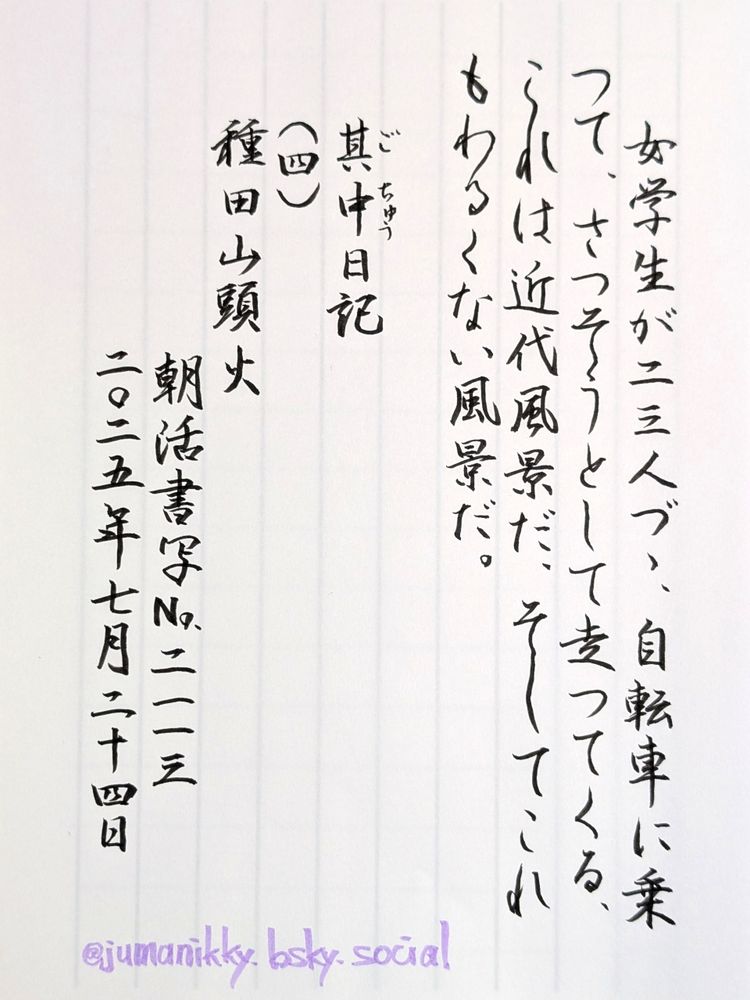 女学生が二三人づゝ、自転車に乗
つて、さつそうとして走つてくる、
これは近代風景だ、そしてこれ
もわるくない風景だ。
其中日記
ごちゅう
（四）
種田山頭火
朝活書写No.二一一三
二〇二五年七月二十四日
@jumanikky.bsky.social